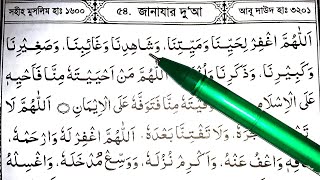 সহীহ মুসলিম হাঃ ১৬০০ ৫৪. জানাযার দু'আ আবূ দাউদ হাঃ ৩২০১
اَللّٰهُمَّ اغْفِرْ لِحَيِّنَا وَمَيِّتِنَا، وَشَاهِدِنَا وَغَائِبِنَا، وَصَغِيْرِنَا
وَكَبِيْرِنَا، وَذَكَرِنَا مَنْ اَحْيَيْتَهٗ مِنَّا فَاَحْيِهٖ
عَلَى الْاِسْلَامِ مِنَّا فَتَوَفَّهٗ عَلَى الْاِيْمَانِ اَللّٰهُمَّ لَا
وَلَا تَفْتِنَّا بَعْدَهٗ اَللّٰهُمَّ اغْفِرْ لَهٗ وَارْحَمْهُ،
وَاعْفُ عَنْهُ، وَاَكْرِمْ نُزُلَهٗ، وَوَسِّعْ مُدْخَلَهٗ، وَاغْسِلْهُ